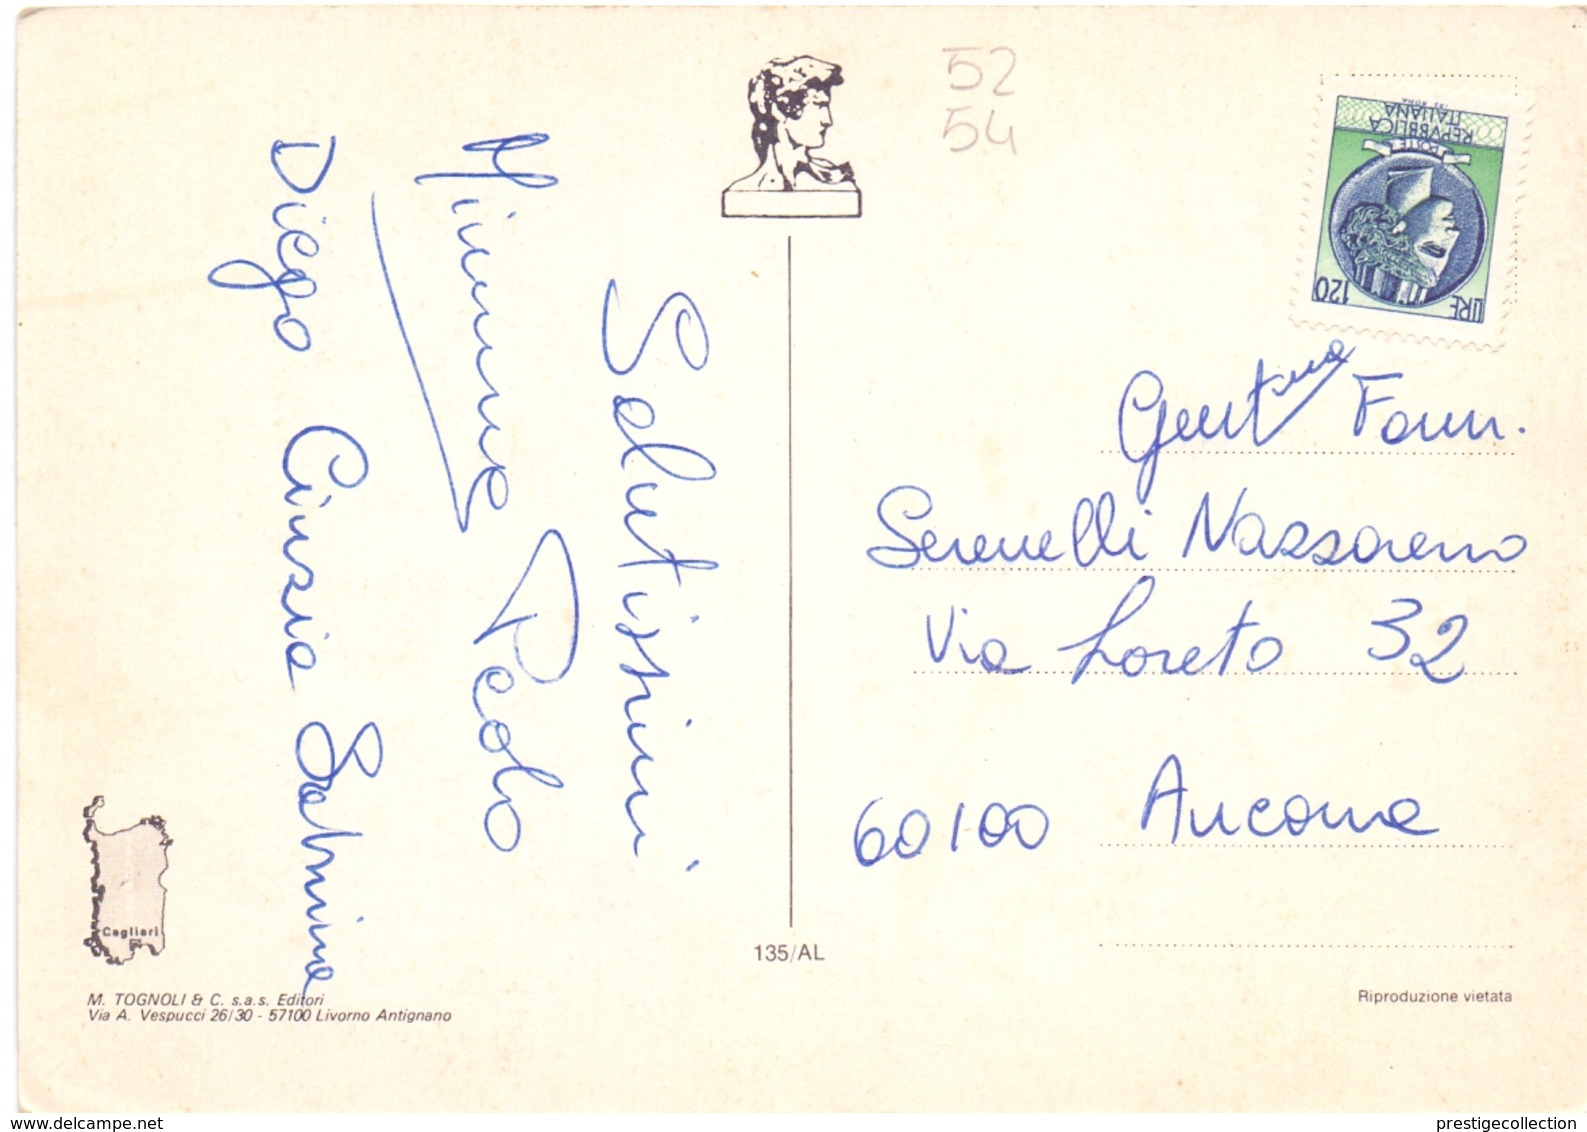 Salutissimi
Mimme Paolo
Diego Cinzia Sabrina
Cagliari
M. TOGNOLI & C. s.a.s. Editori
Via A. Vespucci 26/30 - 57100 Livorno Antignano
135/AL
52
54
I.P.S. ROMA
REPVBBLICA
ITALIANA
POSTE
LIRE 120
Gent.ma Fam.
Serenelli Nazzareno
Via Loreto 32
60100 Ancona
Riproduzione vietata
www.delcampe.net
prestigecollection